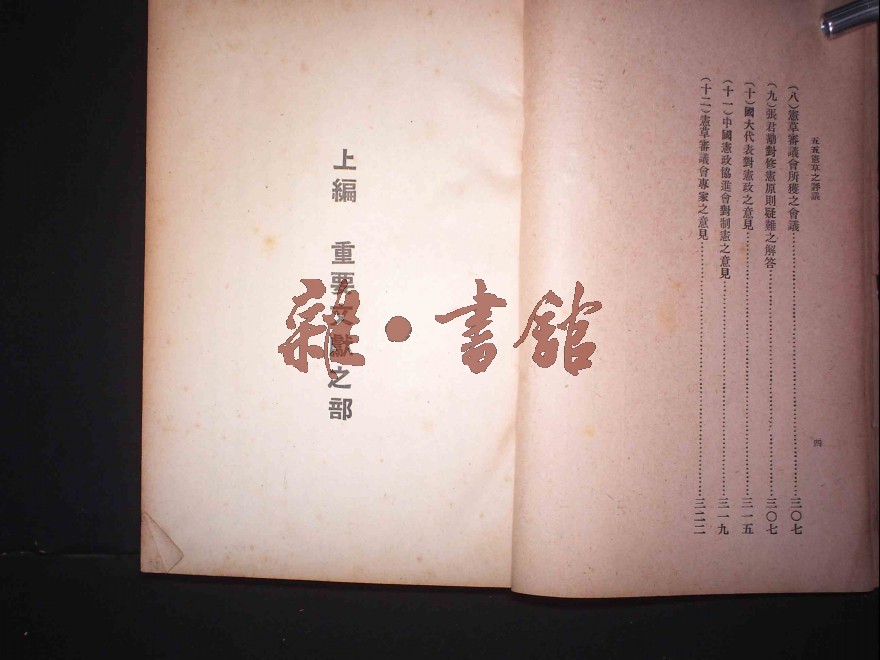 五五憲草之評議
（八）憲草審議會所獲之會議……三〇七
（九）張君勱對修憲原則疑難之解答……三〇七
（十）國大代表對憲政之意見……三一五
（十一）中國憲政協進會對制憲之意見……三一九
（十二）憲草審議會專家之意見……三二二
四
上編　重要文獻之部
雜·書館